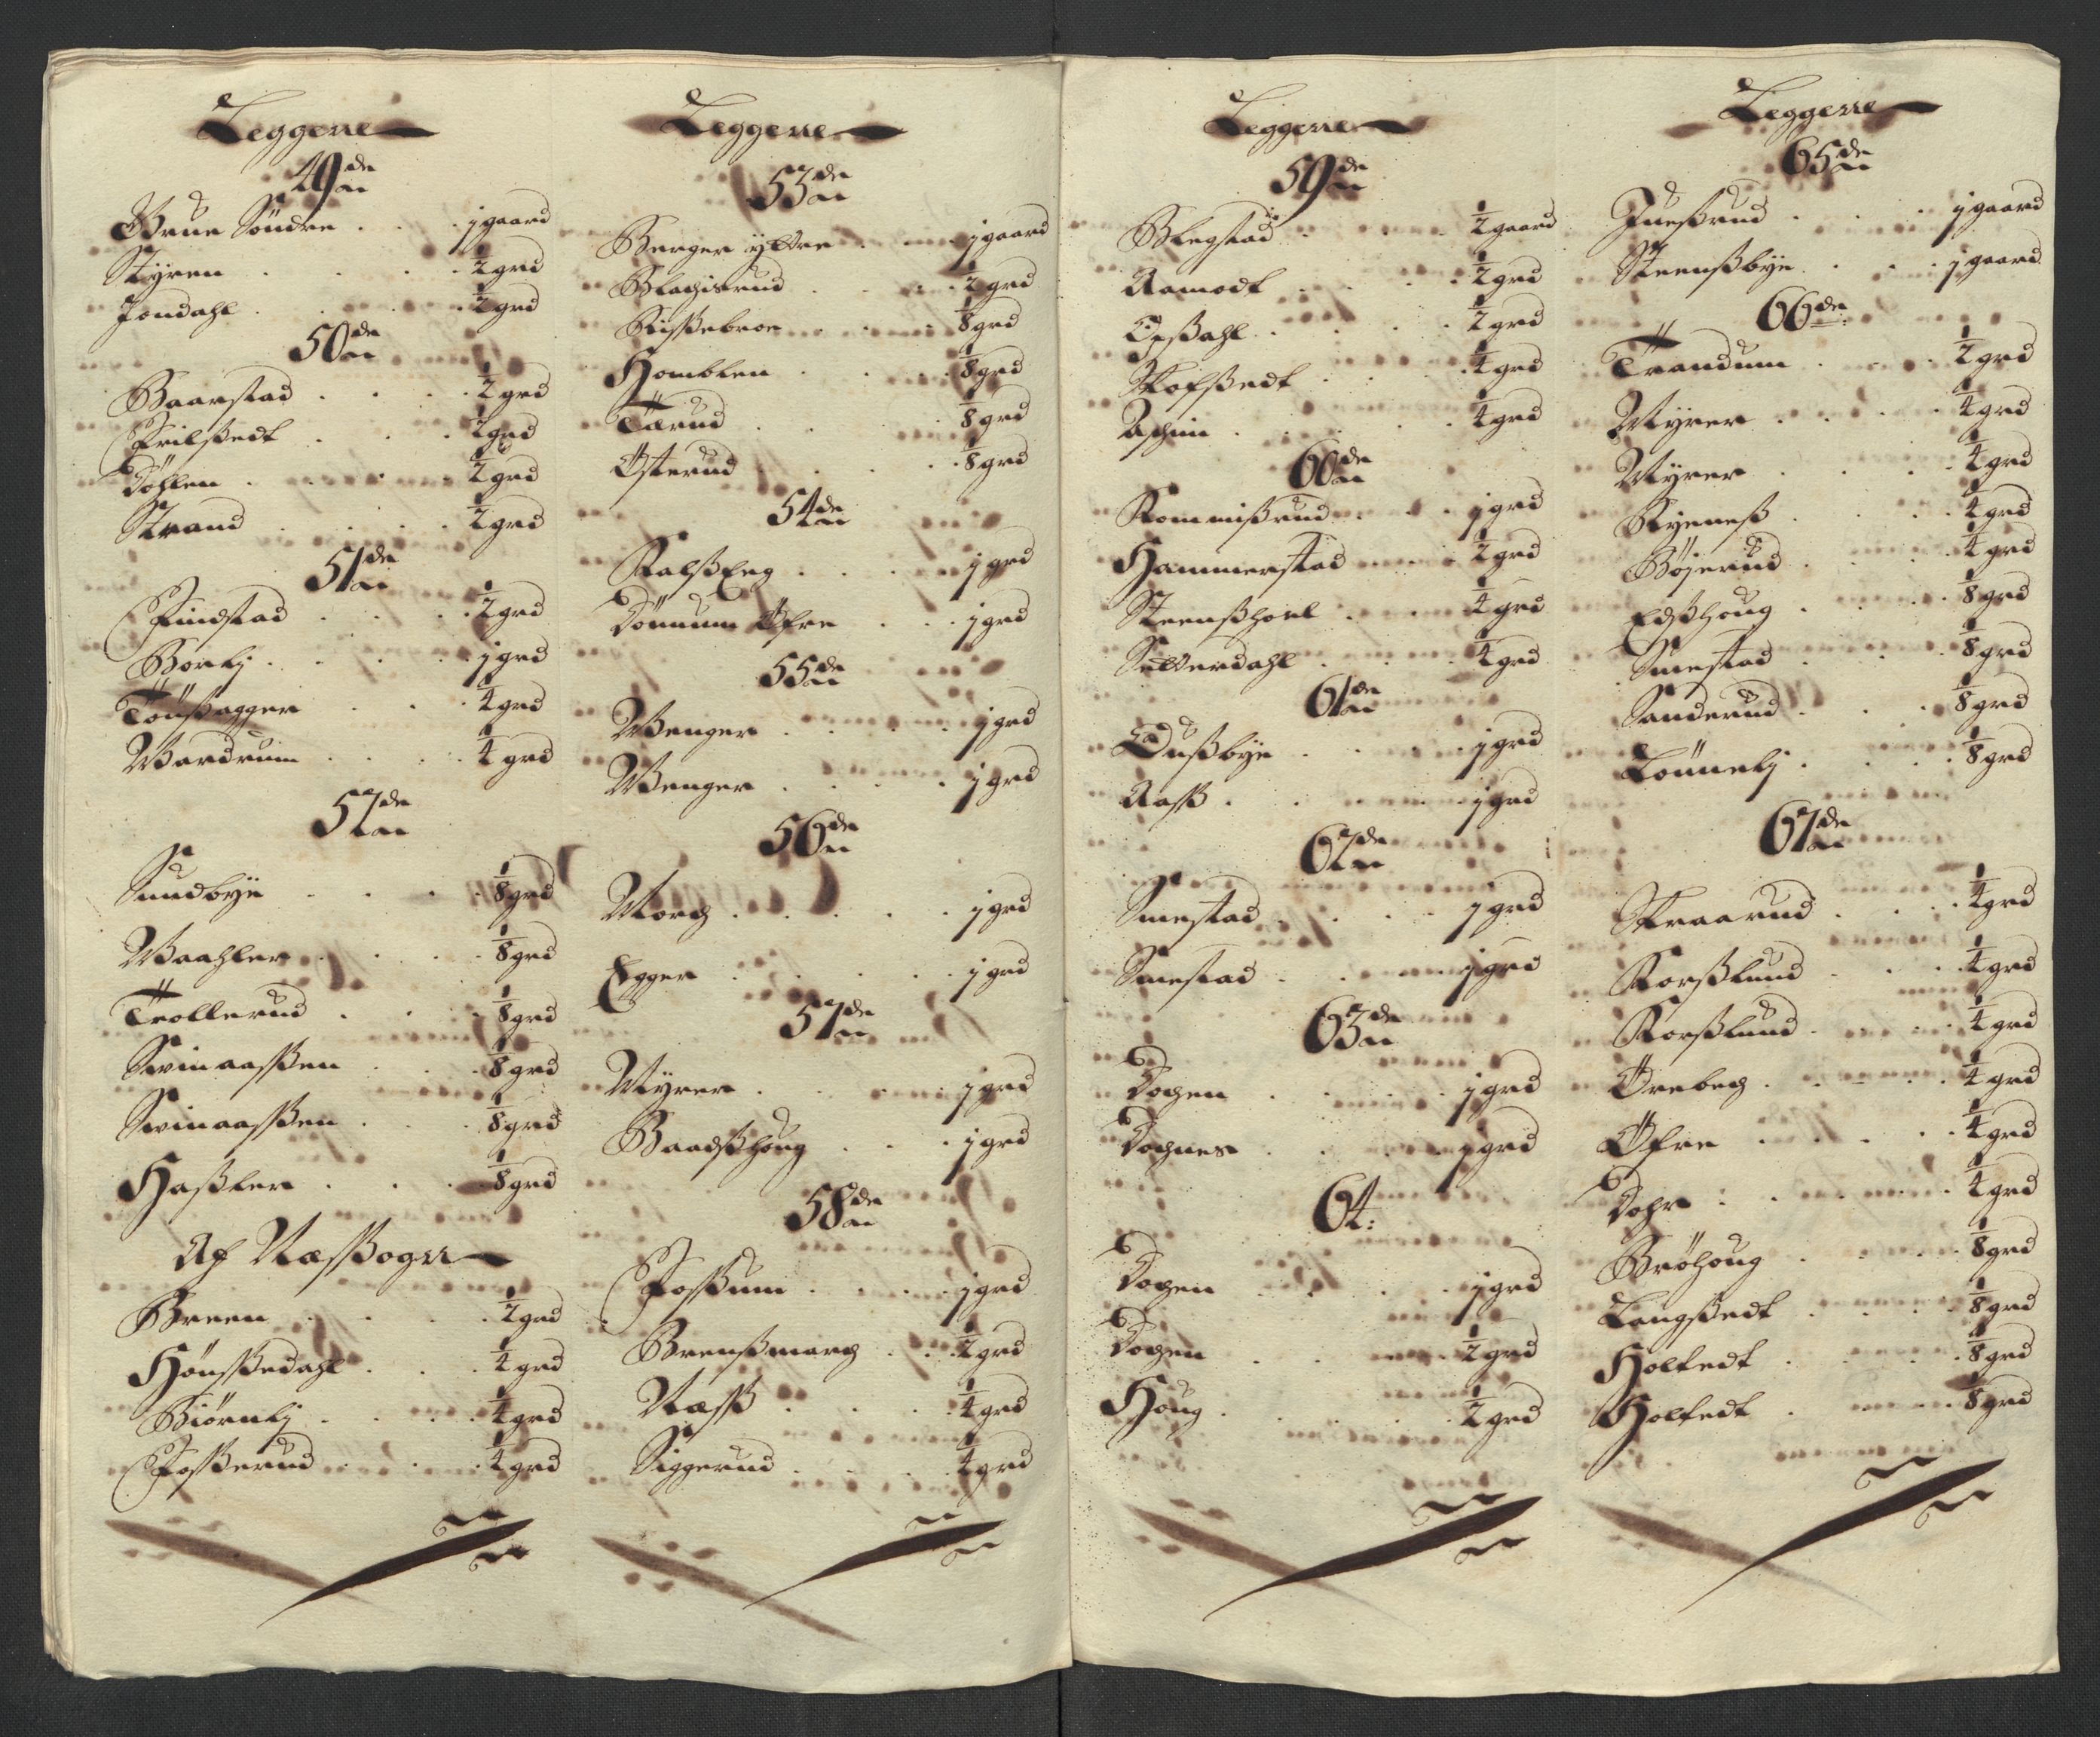 Leggerne
49de
Grue Söndre . . . j gaard
Styren . . . . ½ grd
Jondahl . . . . ½ grd
50de
Baarstad . . . . ½ grd
Frilßedt . . . ½ grd
Döhlen . . . . ½ grd
Strand . . . . ½ grd
51de
Findstad . . . . ½ grd
Borlj . . . . j grd
Töußagger . . . ¼ grd
Wardrum . . . . ¼ grd
52de
Sundbye . . . . ⅛ grd
Waahler . . . . ⅛ grd
Trollerud . . . ⅛ grd
Svinaaßen . . . ⅛ grd
Svinaaßen . . . ⅛ grd
Haßler . . . . ⅛ grd
Af Næßogn
Breen . . . . ½ grd
Hönßedahl . . . ¼ grd
Biörnlj . . . . ¼ grd
Foßerud . . . ¼ grd
Leggerne
53de
Berger yttre . . . j gaard
Blachisrud . . . ½ grd
Rißebroe . . . ⅛ grd
Homblen . . . . ⅛ grd
Tærud . . . . ⅛ grd
Österud . . . . ⅛ grd
54de
Kalßeng . . . . j grd
Dömmum Öfre . . . j grd
55de
Wenger . . . . j grd
Wenger . . . . j grd
56de
Morch . . . . j grd
Egger . . . . j grd
57de
Myrer . . . . j grd
Baadßhoug . . . j grd
58de
Foßum . . . . j grd
Brenßmarch . . . ½ grd
Næß . . . . ¼ grd
Siggerud . . . . ¼ grd
Leggerne
59de
Blegstad . . . . ½ gaard
Aamodt . . . . ½ grd
Opßahl . . . . ½ grd
Kofßedt . . . . ¼ grd
Aschim . . . . ¼ grd
60de
Rommißrud . . . j grd
Hammerstad . . . ½ grd
Steenßhoel . . . ¼ grd
Sulverdahl . . . ¼ grd
61de
Dußbye . . . . j grd
Aaß . . . . j grd
62de
Smestad . . . . j grd
Smestad . . . . j grd
63de
Dochen . . . . j grd
Dochnes . . . . j grd
64:
Dochen . . . . j grd
Dochen . . . . ½ grd
Houg . . . . ½ grd
Leggerne
65de
Jueßrud . . . . j gaard
Steenßbye . . . j gaard
66de
Trandum . . . . ½ grd
Myrer . . . . ¼ grd
Myrer . . . . ¼ grd
Ryeneß . . . . ¼ grd
Böjerud . . . . ¼ grd
Edßhoug . . . . ⅛ grd
Smestad . . . . ⅛ grd
Sanderud . . . . ⅛ grd
Lönnelj . . . . ⅛ grd
67de
Kraarud . . . . ¼ grd
Korßlund . . . ¼ grd
Korßlund . . . ¼ grd
Örebech . . . . ¼ grd
Öfre . . . . ¼ grd
Dohr . . . . ¼ grd
Bröhoug . . . . ⅛ grd
Langßedt . . . . ⅛ grd
Holtedt . . . . ⅛ grd
Holtedt . . . . ⅛ grd